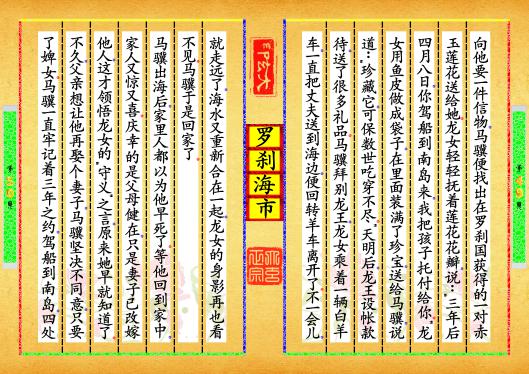 向他要一件信物马骥便找出在罗刹国获得的一对赤
玉莲花送给她龙女轻轻抚着莲花花瓣说：三年后
四月八日你驾船到南岛来我把孩子托付给你龙
女用鱼皮做成袋子在里面装满了珍宝送给马骥说
道：珍藏它可保数世吃穿不尽天明后龙王设帐款
待送了很多礼品马骥拜别龙王龙女乘着一辆白羊
车一直把丈夫送到海边便回转羊车离开了不一会儿
罗刹海市
就走远了海水又重新合在一起龙女的身影再也看
不见马骥于是回家了
马骥出海后家里人都以为他早死了等他回到家中
家人又惊又喜庆幸的是父母健在只是妻子已改嫁
他人这才领悟龙女的“守义”之言原来她早就知道了
不久父亲想让他再娶个妻子马骥坚决不同意只要
了婢女马骥一直牢记着三年之约驾船到南岛四处